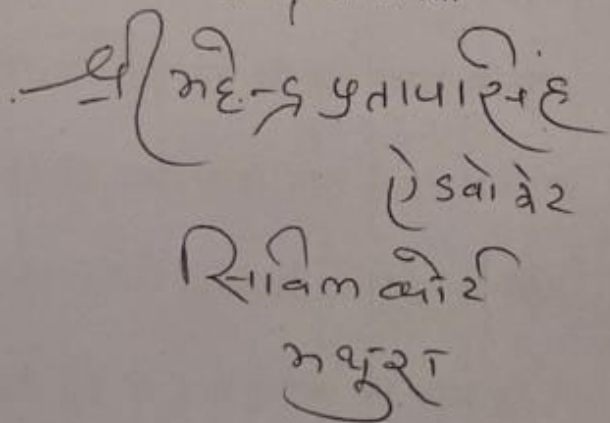 श्री महेन्द्र प्रतापसिंह
ऐडवोकेट
सिविल कोर्ट
मथुरा